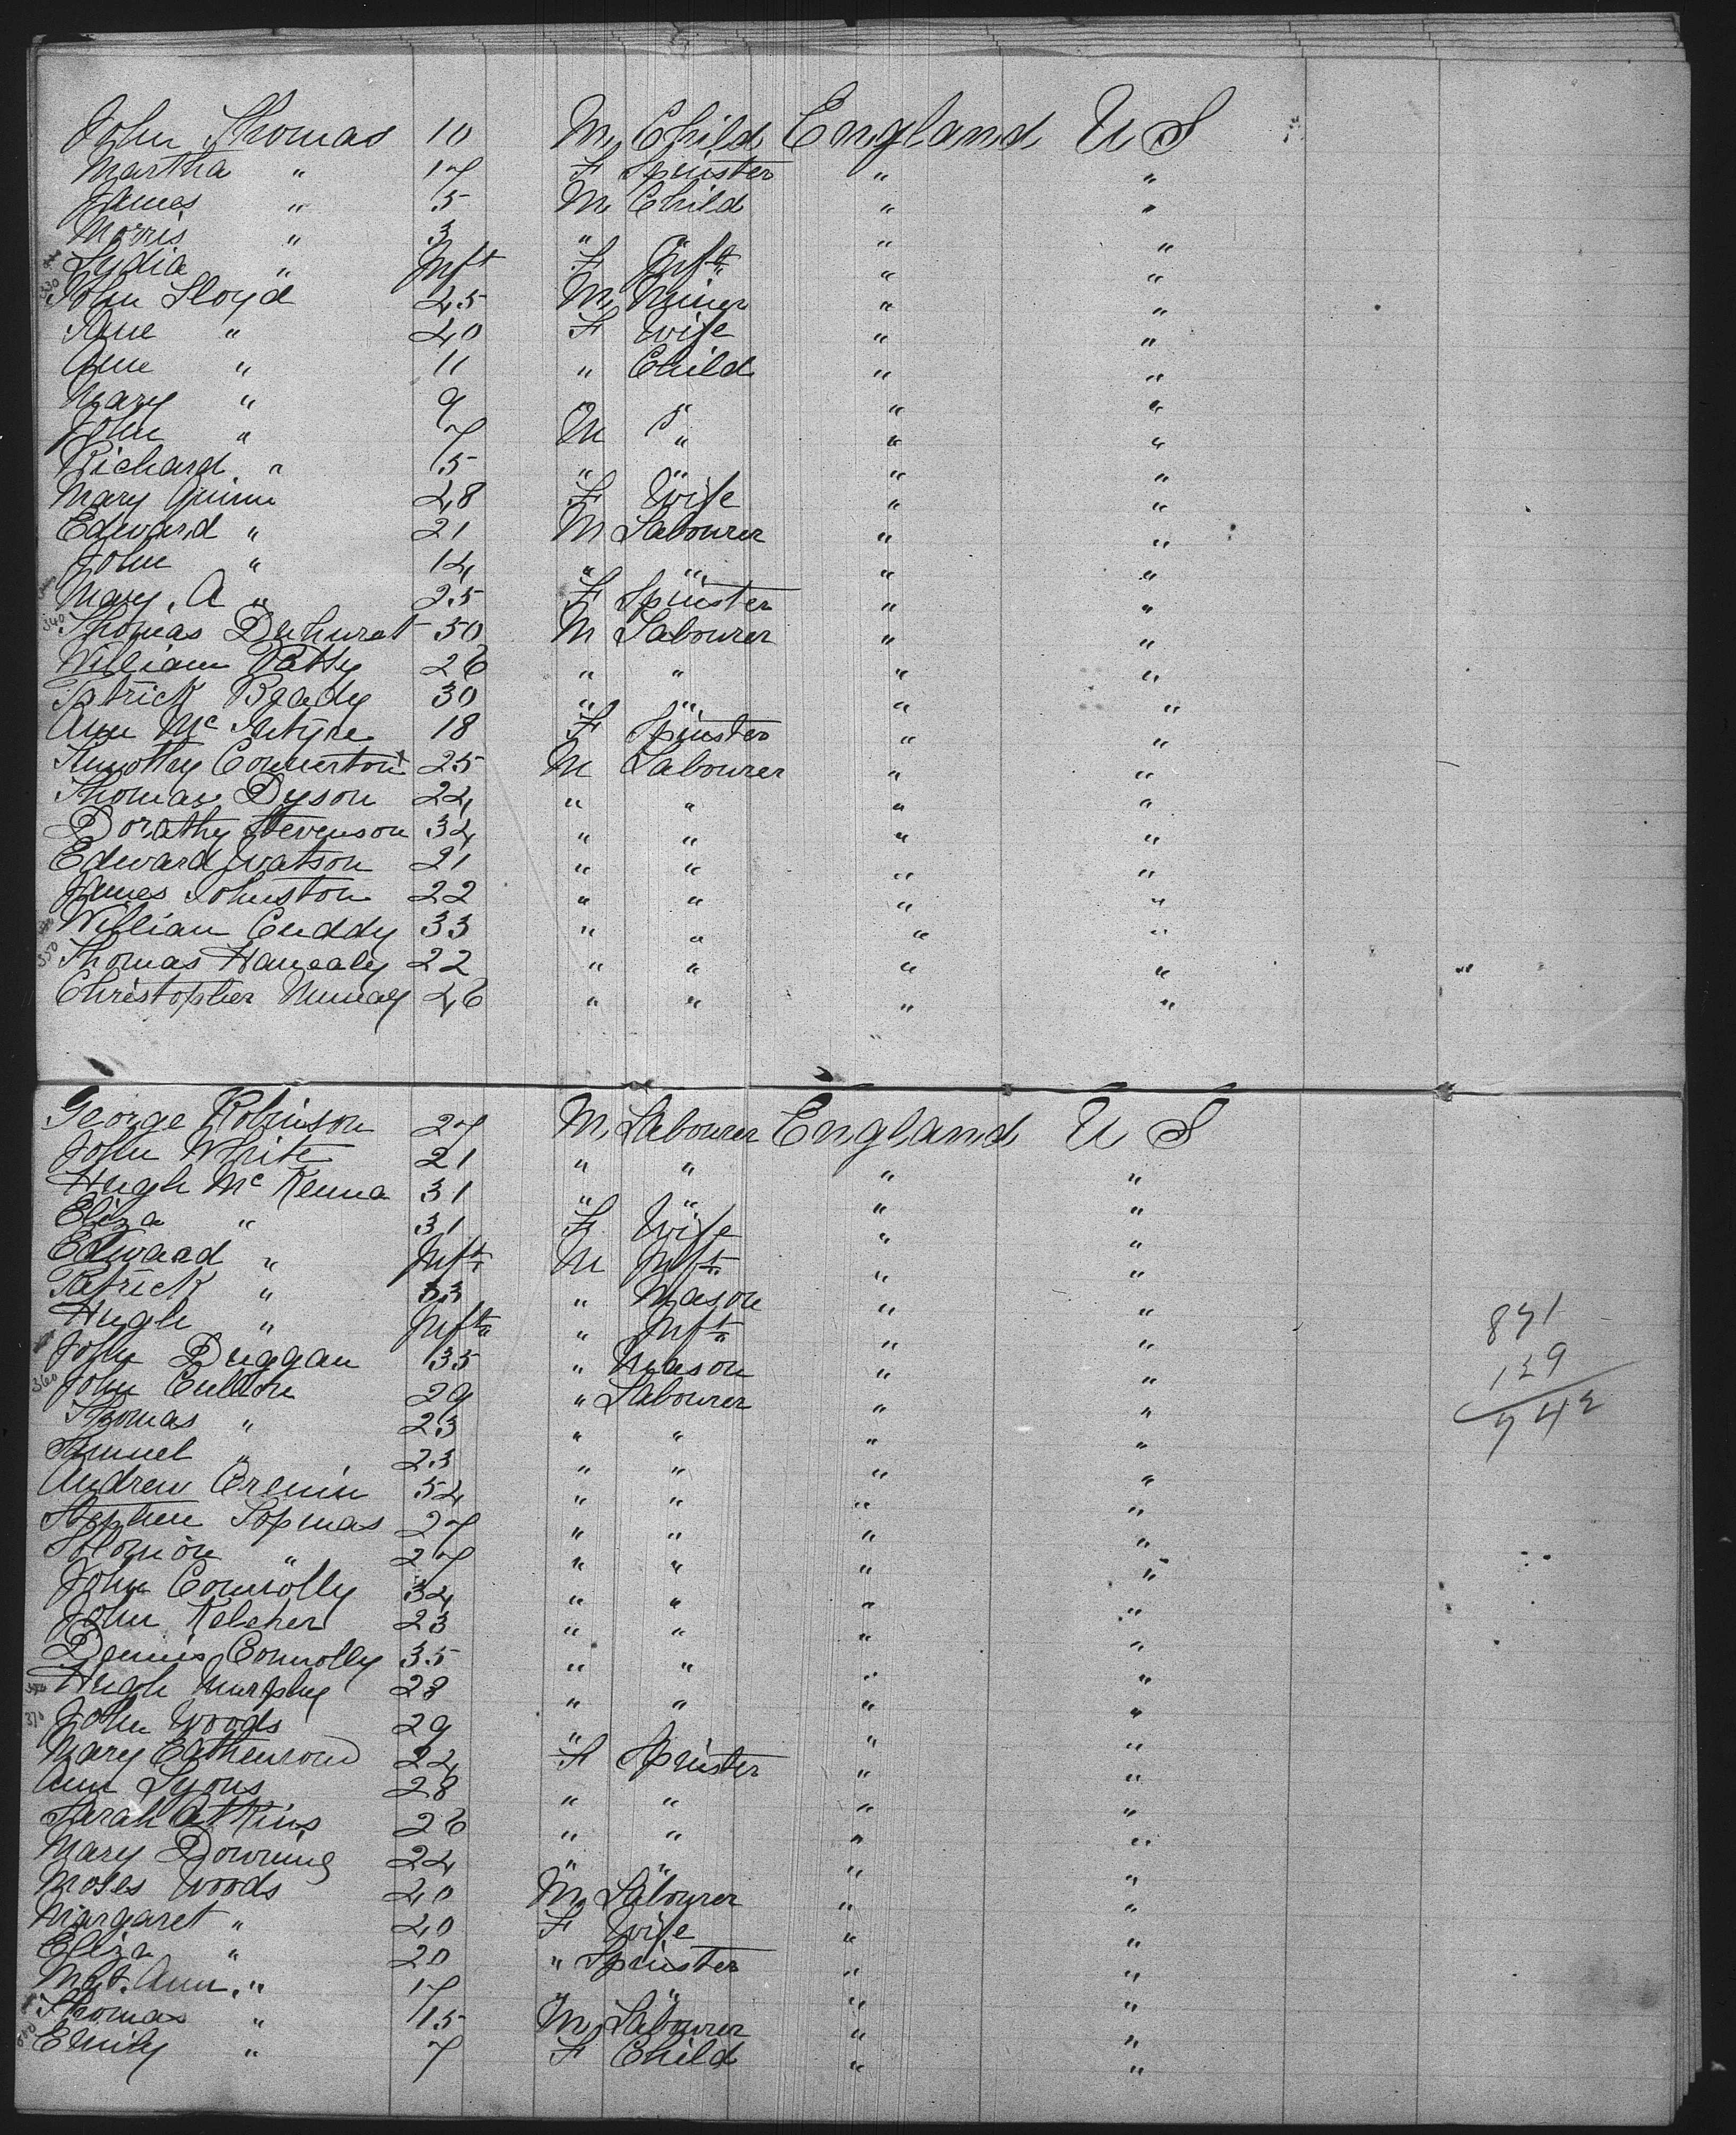 John Thomas 10 M Child England U S
Martha " 17 F Spinster " "
James " 5 M Child " "
Morris " 3 " " " "
Lydia " Inft F Inft " "
330 John Lloyd 45 M Miner " "
Jane " 40 F Wife " "
Ann " 11 " Child " "
Mary " 9 " " " "
John " 7 M " " "
Richard " 5 " " " "
Mary Quinn 48 F Wife " "
Edward " 21 M Labourer " "
John " 14 " " " "
Mary A " 25 F Spinster " "
340 Thomas 50 M Labourer " "
William 26 " " " "
Patrick Brady 30 " " " "
Ann Mc Intyre 18 F Spinster " "
Timothy 25 M Labourer " "
Thomas Dyson 24 " " " "
Dorathy Stevenson 34 " " " "
Edward Watson 21 " " " "
James Johnston 22 " " " "
William Cuddy 33 " " " "
350 Thomas 22 " " " "
Christopher 46 " " " "
George Robinson 27 M Labourer England U S
John White 21 " " " "
Hugh Mc Kenna 31 " " " "
Eliza " 31 F Wife " "
Edward " Inft M Inft " "
Patrick " 33 " Mason " "
Hugh " Inft " Inft " "
John Duggan 35 " Mason " "
360 John 29 " Labourer " "
Thomas " 23 " " " "
Samuel " 23 " " " "
Andrew Cremin 54 " " " "
Stephen 27 " " " "
Solomon " 27 " " " "
John Connolly 34 " " " "
John Kelcher 23 " " " "
Dennis Connolly 35 " " " "
Hugh Murphy 28 " " " "
370 John Woods 29 " " " "
Mary 24 F Spinster " "
Ann Lyons 28 " " " "
Sarah Atkins 26 " " " "
Mary Downing 24 " " " "
Moses Woods 40 M Labourer " "
Margaret " 40 F Wife " "
Eliza " 20 " Spinster " "
Mgt. Ann " 17 " " " "
Thomas " 15 M Labourer " "
Emily " 7 F Child " "
871
129
742